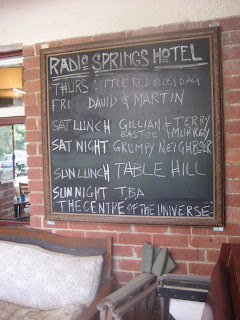 RADIO SPRINGS HOTEL
THURS LITTLE RED BLUES BAG
FRI DAVID & MARTIN
SAT LUNCH GILLIAN & TERRY
EASTOE & MURRAY
SAT NIGHT GRUMPY NEIGHBOUR
SUN LUNCH TABLE HILL
SUN NIGHT TBA
THE CENTRE OF THE UNIVERSE